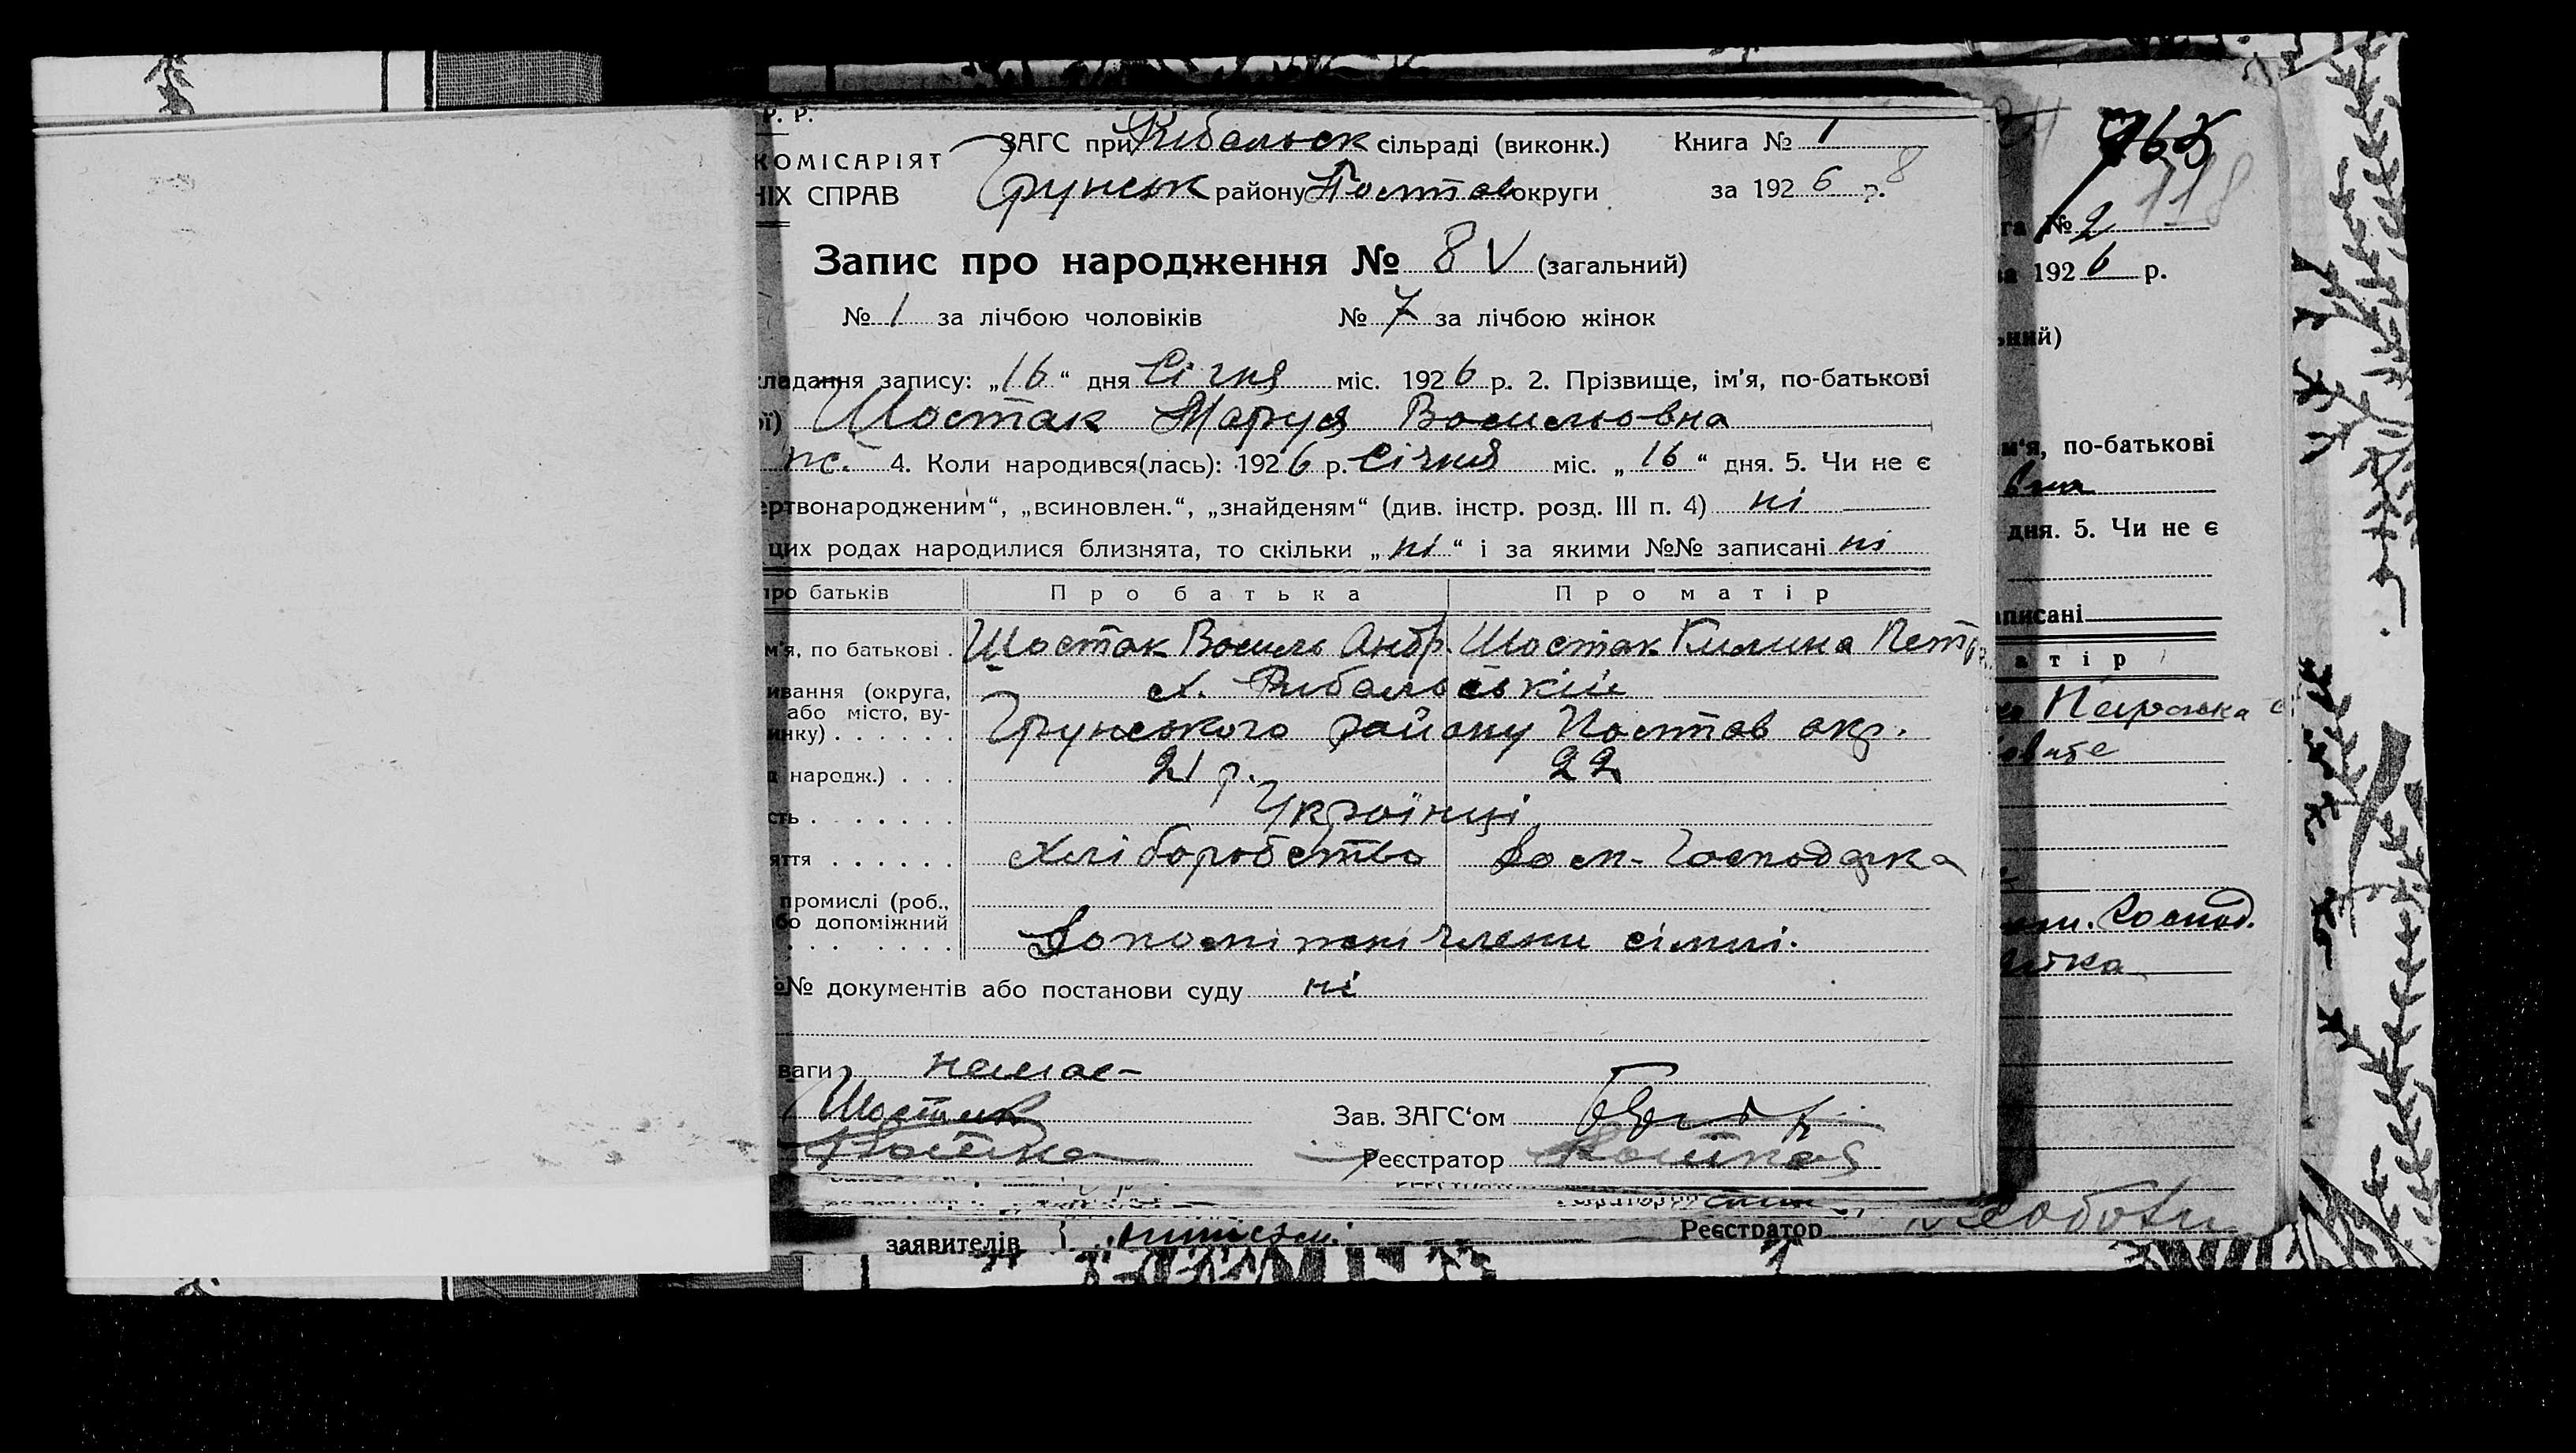 Р. Р.
КОМІСАРІЯТ
ЗАГС при Рибальск сільраді (виконк.) Книга № 1
НІХ СПРАВ
Грунськ району Полтав округи за 1926 р. 8
Запис про народження № 8 V (загальний)
№ 1 за лічбою чоловіків № 7 за лічбою жінок
кладання запису: „16“ дня Січня міс. 1926 р. 2. Прізвище, ім'я, по-батькові
ої) Шостак Маруся Васильовна
4. Коли народився(лась): 1926 р. Січня міс. „16“ дня. 5. Чи не є
ертвонародженим“, „всиновлен.“, „знайденям“ (див. інстр. розд. III п. 4) ні
цих родах народилися близнята, то скільки „ні“ і за якими №№ записані ні
про батьків Про батька Про матір
м'я, по батькові . Шостак Василь Андр. Шостак Килина Петр
ивання (округа, х. Рибальській
або місто, ву-
инку) . . . . . . Грунського району Полтав окр.
народж.) . . . 21 р. 22
сть . . . . . . . Українці
яття . . . . . . Хліборобство Дом-Господарка
промислі (роб.,
бо допоміжний
. . . . . . . Допоміжні члени сімії.
№№ документів або постанови суду ні
ваги немає-
Шостак Зав. ЗАГС'ом
Реєстратор
заявителів Реєстратор
763
118
га № 2
за 1926 р.
ьний)
м'я, по-батькові
вна
дня. 5. Чи не є
аписані
а т і р
Господ.